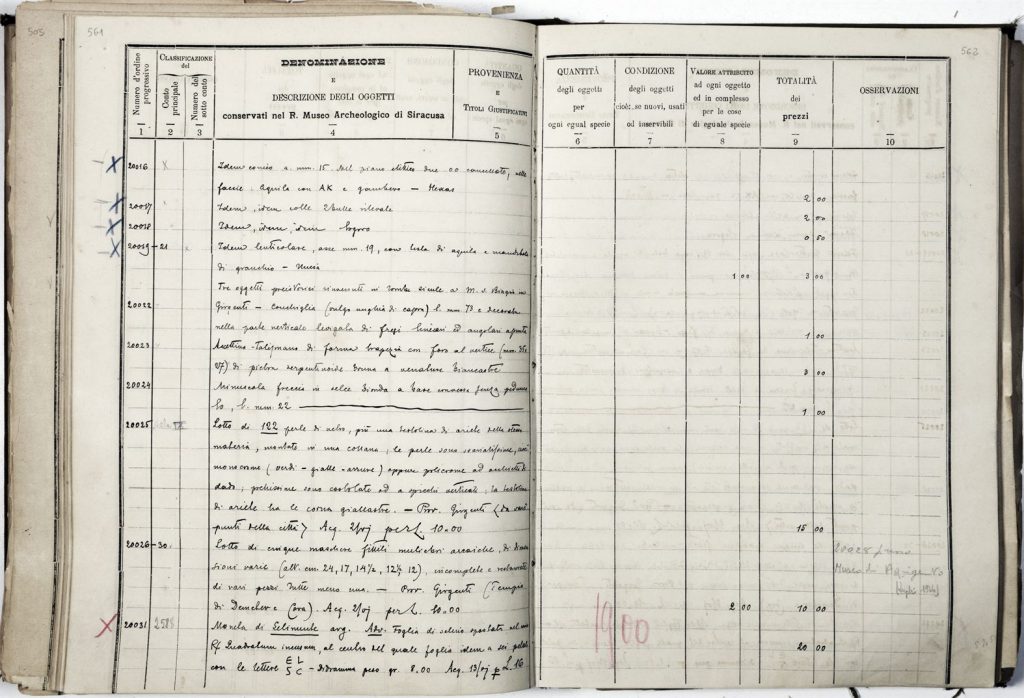 505
561
Numero d'ordine progressivo
CLASSIFICAZIONE del
Conto principale
Numero del sotto conto
DENOMINAZIONE
E
DESCRIZIONE DEGLI OGGETTI
conservati nel R. Museo Archeologico di Siracusa
PROVENIENZA
E
TITOLI GIUSTIFICATIVI
1 2 3 4 5
20016 X Idem conico a mm. 15 nel piano due 00 nelle
faccie. Aquila con AK e gambero — Hexas
20017 Idem, idem colle 2 bulle rilevate
20018 Idem, idem, idem logoro
20019-21 Idem lenticolare, asse mm. 19, con testa di aquila e mandibola
di granchio — Uncia
Tre oggetti preistorici rinvenuti in tombe sicule a M. S. Biagio in
20022 Girgenti — Conchiglia (vulgo unghia di capra) l. mm 73 e decorata
nella parte verticale levigata di fregi lineari ed angolari
20023 Amuleto-Talismano di forma con foro al vertice (mm.
27) di pietra serpentinoide a venature biancastre
20024 Minuscola freccia in selce bionda a base senza
lo, l. mm. 22
20025 Lotto di 122 perle di vetro, più una testolina di ariete della stessa
materia, montato in una collana, le perle sono svariatissime,
monocrome (verdi - gialle - azzurre) oppure policrome ad
dadi, sono ad a spicchi verticali, la testolina
di ariete ha le corna giallastre. — Prov. Girgenti (da vari
punti della città) Acq. 2/07 per L. 10.00
20026-30 Lotto di cinque maschere fittili muliebri arcaiche, di
sioni varie (alt. cm. 24, 17, 14½, 12½, 12), incomplete e restaurate
di vari pezzi tutte meno una. — Prov. Girgenti (Tempio
di Demeter e Cora). Acq. 2/07 per L. 10.00
20031 Moneta di Selinunte arg. Adv. Foglia di selino
R/ Quadratum incusum, al centro del quale foglia idem a sei
con le lettere EL SC - didramma peso gr. 8.00 Acq. 13/07 p. L. 16
562
QUANTITÀ
degli oggetti
per
ogni egual specie
CONDIZIONE
degli oggetti
cioè: se nuovi, usati
od inservibili
VALORE ATTRIBUITO
ad ogni oggetto
ed in complesso
per le cose
di eguale specie
TOTALITÀ
dei
prezzi
OSSERVAZIONI
6 7 8 9 10
2 00
2 00
0 50
1 00 3 00
1 00
3 00
1 00
15 00
20025
Museo di
2 00 10 00
1900
20 00